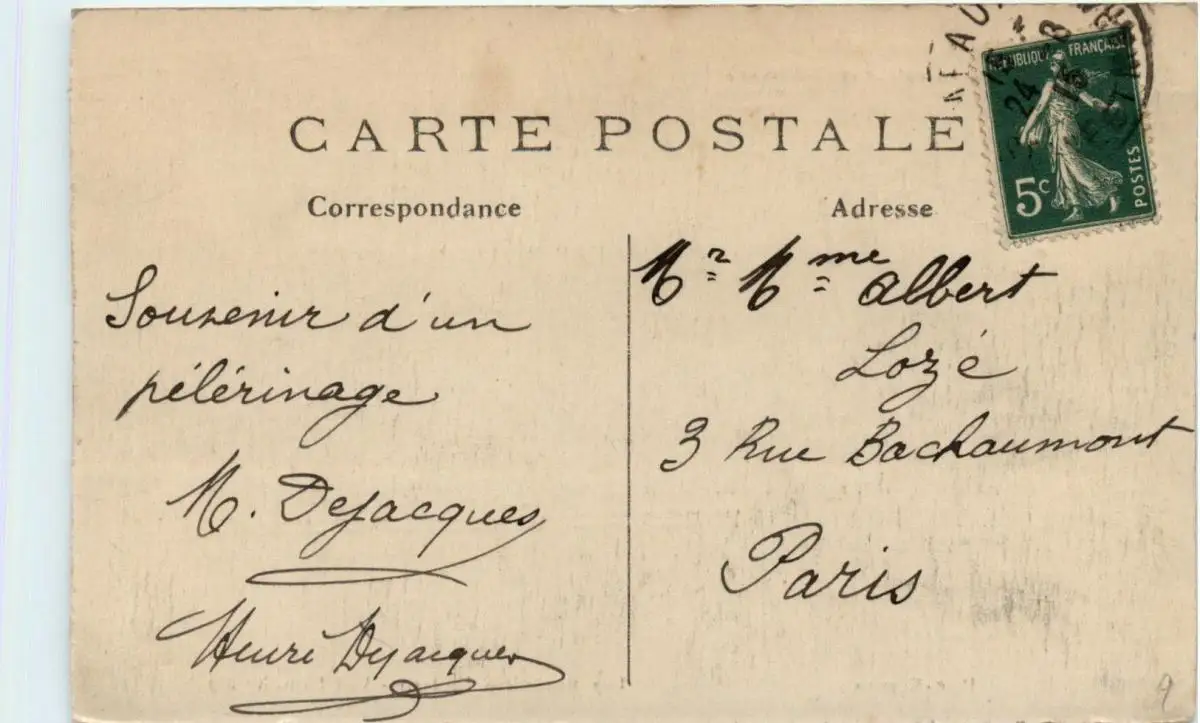 CARTE POSTALE
RÉPUBLIQUE FRANÇAISE
5c
POSTES
24
Correspondance
Adresse
Souvenir d'un
pélérinage
M. Dejacques
Henri Dejacques
Mr Mme Albert
Lozé
3 Rue Bachaumont
Paris
9